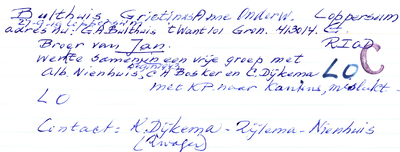 Bulthuis Gristinus Arne Onderw. Loppersum
adres nu: G.A. Bulthuis t Want 101 Gron. 413014. G.
Broer van Jan. RIOD
werkte samen in een vrije groep met
Alb. Nienhuis, C A Bosker en L. Dijkema LO C
met KP naar Kantens, mislukt -
LO
Contact: K. Dijkema - Zijlema - Nienhuis
(Zwager)